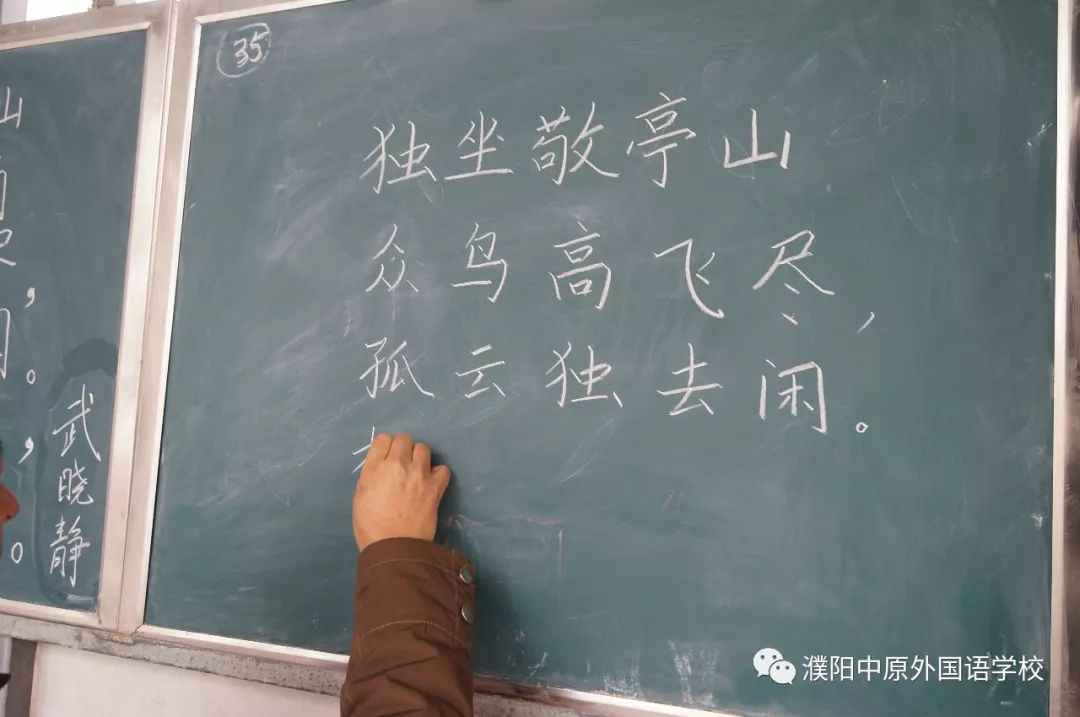 武晓静
35
独坐敬亭山
众鸟高飞尽，
孤云独去闲。
濮阳中原外国语学校